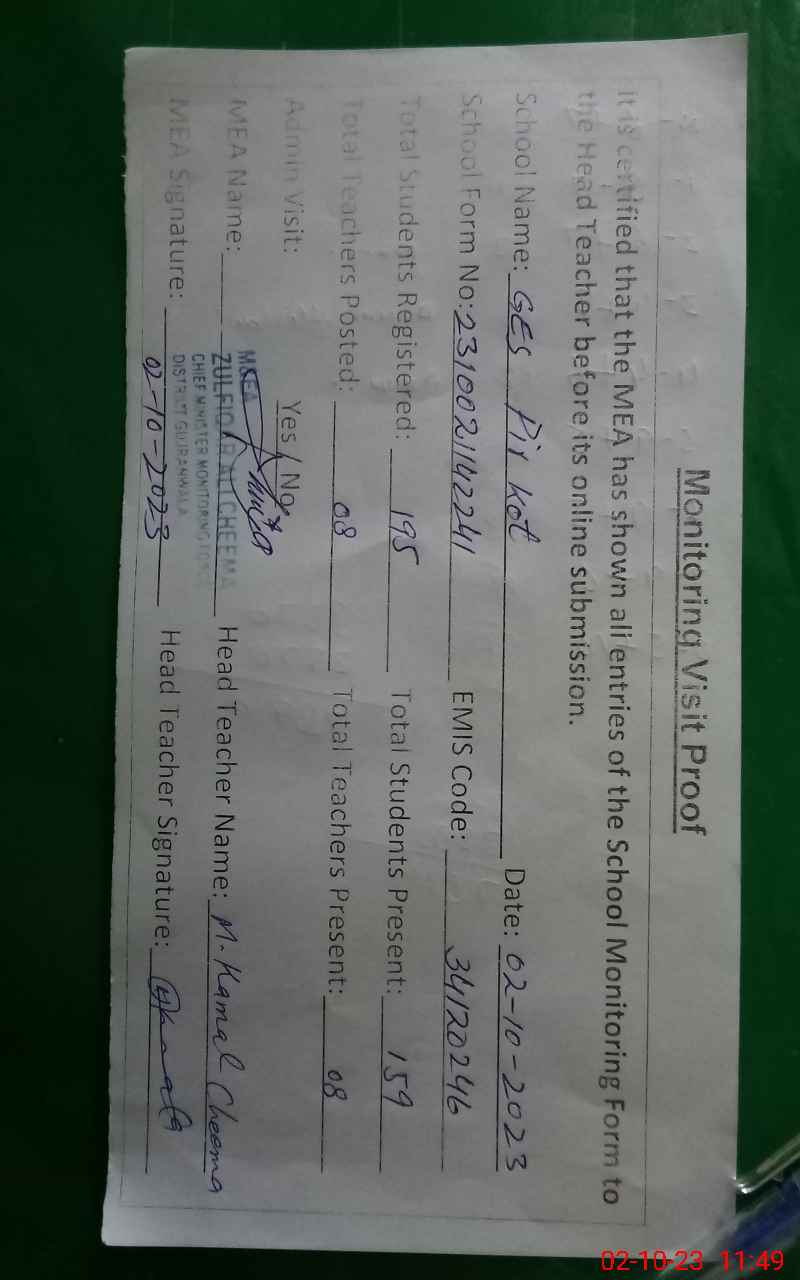 Monitoring Visit Proof
It is certified that the MEA has shown all entries of the School Monitoring Form to
the Head Teacher before its online submission.
School Name: GES Pir Kot Date: 02-10-2023
School Form No: 231002142241 EMIS Code: 34120246
Total Students Registered: 195 Total Students Present: 159
Total Teachers Posted: 08 Total Teachers Present: 08
Admin Visit: Yes / No
M&EA
MEA Name: ZULFIQAR ALI CHEEMA Head Teacher Name: M. Kamal Cheema
CHIEF MINISTER MONITORING FORCE
DISTRICT GUJRANWALA
MEA Signature: 02-10-2023 Head Teacher Signature:
02-10-23 11:49